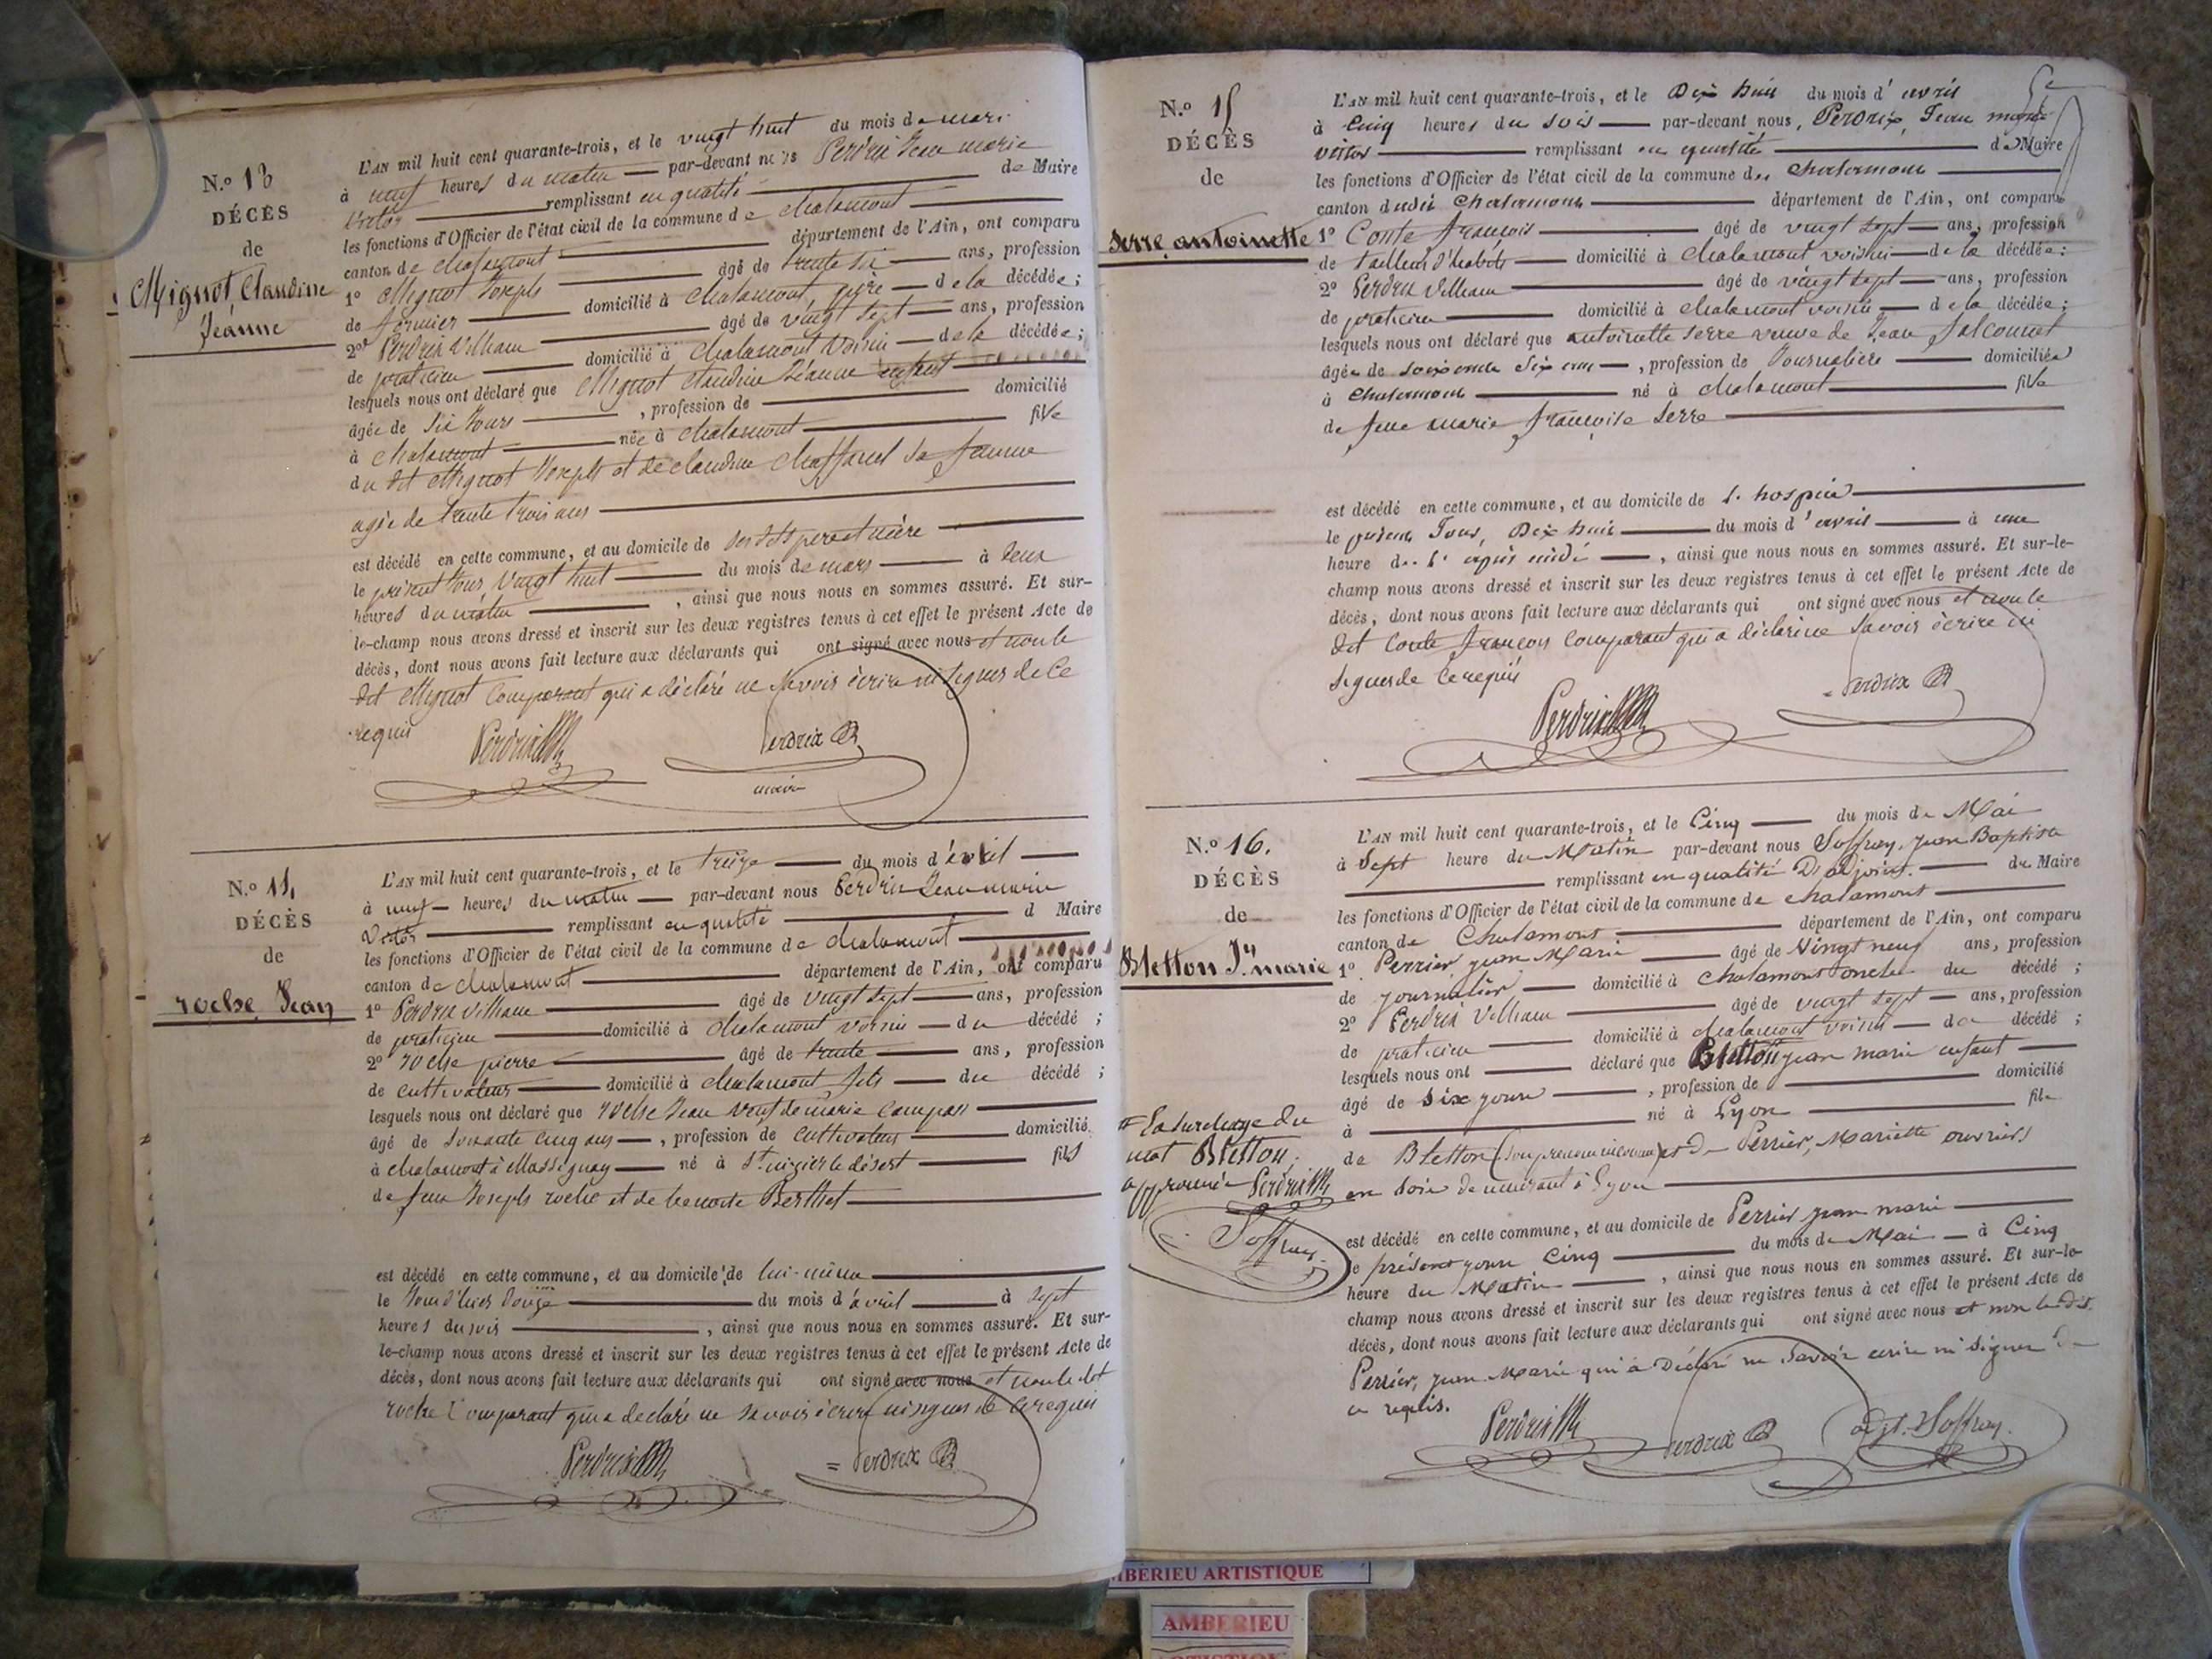 N.º 13
DÉCÈS
de
Mignot Claudine
Jeanne
L'AN mil huit cent quarante-trois, et le vingt huit du mois de mars
à neuf heures du matin par-devant nous Perdrix Jean marie
victor remplissant en qualité de Maire
les fonctions d'Officier de l'état civil de la commune de chalamont
canton de chalamont département de l'Ain, ont comparu
1º Mignot Joseph âgé de trente six ans, profession
de fermier domicilié à chalamont, père de la décédée ;
2º Perdrix Villiam âgé de vingt sept ans, profession
de praticien domicilié à chalamont voisin de la décédée ;
lesquels nous ont déclaré que Mignot claudine Jeanne enfant
âgée de six Jours , profession de domicilié
à chalamont née à chalamont fille
du dit Mignot Joseph et de claudine sa femme
agée de trente trois ans
est décédé en cette commune, et au domicile de ses dits père et mère
le présent Jour, vingt huit du mois de mars à deux
heures du matin , ainsi que nous nous en sommes assuré. Et sur-
le-champ nous avons dressé et inscrit sur les deux registres tenus à cet effet le présent Acte de
décès, dont nous avons fait lecture aux déclarants qui ont signé avec nous et non le
dit Mignot Comparant qui a déclaré ne savoir écrire ni signer de ce
requis
Perdrix
Perdrix
maire
N.º 14
DÉCÈS
de
roche Jean
L'AN mil huit cent quarante-trois, et le treize du mois d'avril
à neuf heures du matin par-devant nous Perdrix Jean marie
Victor remplissant en qualité d Maire
les fonctions d'Officier de l'état civil de la commune de chalamont
canton de chalamont département de l'Ain, ont comparu
1º Perdrix Villiam âgé de vingt sept ans, profession
de praticien domicilié à chalamont voisin du décédé ;
2º roche pierre âgé de trente ans, profession
de cultivateur domicilié à chalamont fils du décédé ;
lesquels nous ont déclaré que roche Jean veuf de marie
âgé de soixante cinq ans , profession de cultivateur domicilié
à chalamont à né à St. nizier le désert fils
de feu Joseph roche et de benoite Berthet
est décédé en cette commune, et au domicile de lui-même
le Jour d'hier douze du mois d'avril à sept
heures du soir , ainsi que nous nous en sommes assuré. Et sur-
le-champ nous avons dressé et inscrit sur les deux registres tenus à cet effet le présent Acte de
décès, dont nous avons fait lecture aux déclarants qui ont signé avec nous et non le dit
roche Comparant qui a declaré ne savoir écrire ni signer de ce requis
Perdrix
Perdrix
N.º 15
DÉCÈS
de
Serre antoinette
L'AN mil huit cent quarante-trois, et le Dix huit du mois d'avril
à Cinq heures du soir par-devant nous, Perdrix, Jean marie
victor remplissant en qualité de Maire
les fonctions d'Officier de l'état civil de la commune de Chalamont
canton dudit Chalamont département de l'Ain, ont comparu
1º Conte françois âgé de vingt sept ans, profession
de tailleur d'habits domicilié à Chalamont voisin de la décédée :
2º Perdrix Villiam âgé de vingt sept ans, profession
de praticien domicilié à chalamont voisin de la décédée ;
lesquels nous ont déclaré que antoinette Serre veuve de Jean
âgée de soixante dix ans , profession de Journalière domiciliée
à Chalamont né à chalamont fille
de feue marie françoise Serre
est décédé en cette commune, et au domicile de l'hospice
le présent Jour, Dix huit du mois d'avril à une
heure de l'après midi , ainsi que nous nous en sommes assuré. Et sur-le-
champ nous avons dressé et inscrit sur les deux registres tenus à cet effet le présent Acte de
décès, dont nous avons fait lecture aux déclarants qui ont signé avec nous et non le
dit Conte françois Comparant qui a déclaré ne savoir écrire ni
signer de ce requis
Perdrix
Perdrix
N.º 16.
DÉCÈS
de
Bletton Jn. marie
L'AN mil huit cent quarante-trois, et le Cinq du mois de Mai
à Sept heure du Matin par-devant nous Soffray, jean Baptiste
remplissant en qualité D'adjoint de Maire
les fonctions d'Officier de l'état civil de la commune de chalamont
canton de Chalamont département de l'Ain, ont comparu
1º Perrier, jean Marie âgé de Vingt neuf ans, profession
de journalier domicilié à Chalamont oncle du décédé ;
2º Perdrix Villiam âgé de vingt sept ans, profession
de praticien domicilié à chalamont voisin du décédé ;
lesquels nous ont déclaré que Bletton jean marie enfant
âgé de six jours , profession de domicilié
à né à Lyon fils
de Bletton (son prenom inconnu) et de Perrier, Mariette ouvriers
en soie demeurant à Lyon
est décédé en cette commune, et au domicile de Perrier jean marie
le présent jour Cinq du mois de Mai à Cinq
heure du Matin , ainsi que nous nous en sommes assuré. Et sur-le-
champ nous avons dressé et inscrit sur les deux registres tenus à cet effet le présent Acte de
décès, dont nous avons fait lecture aux déclarants qui ont signé avec nous et non le dit.
Perrier, jean Marie qui a Déclaré ne Savoir ecrire ni Signer de
ce requis.
Perdrix
Perdrix
adjt. Soffray.
= La surcharge du
mot Bletton,
approuvée Perdrix
Soffray
AMBERIEU ARTISTIQUE
AMBERIEU
ARTISTIQUE